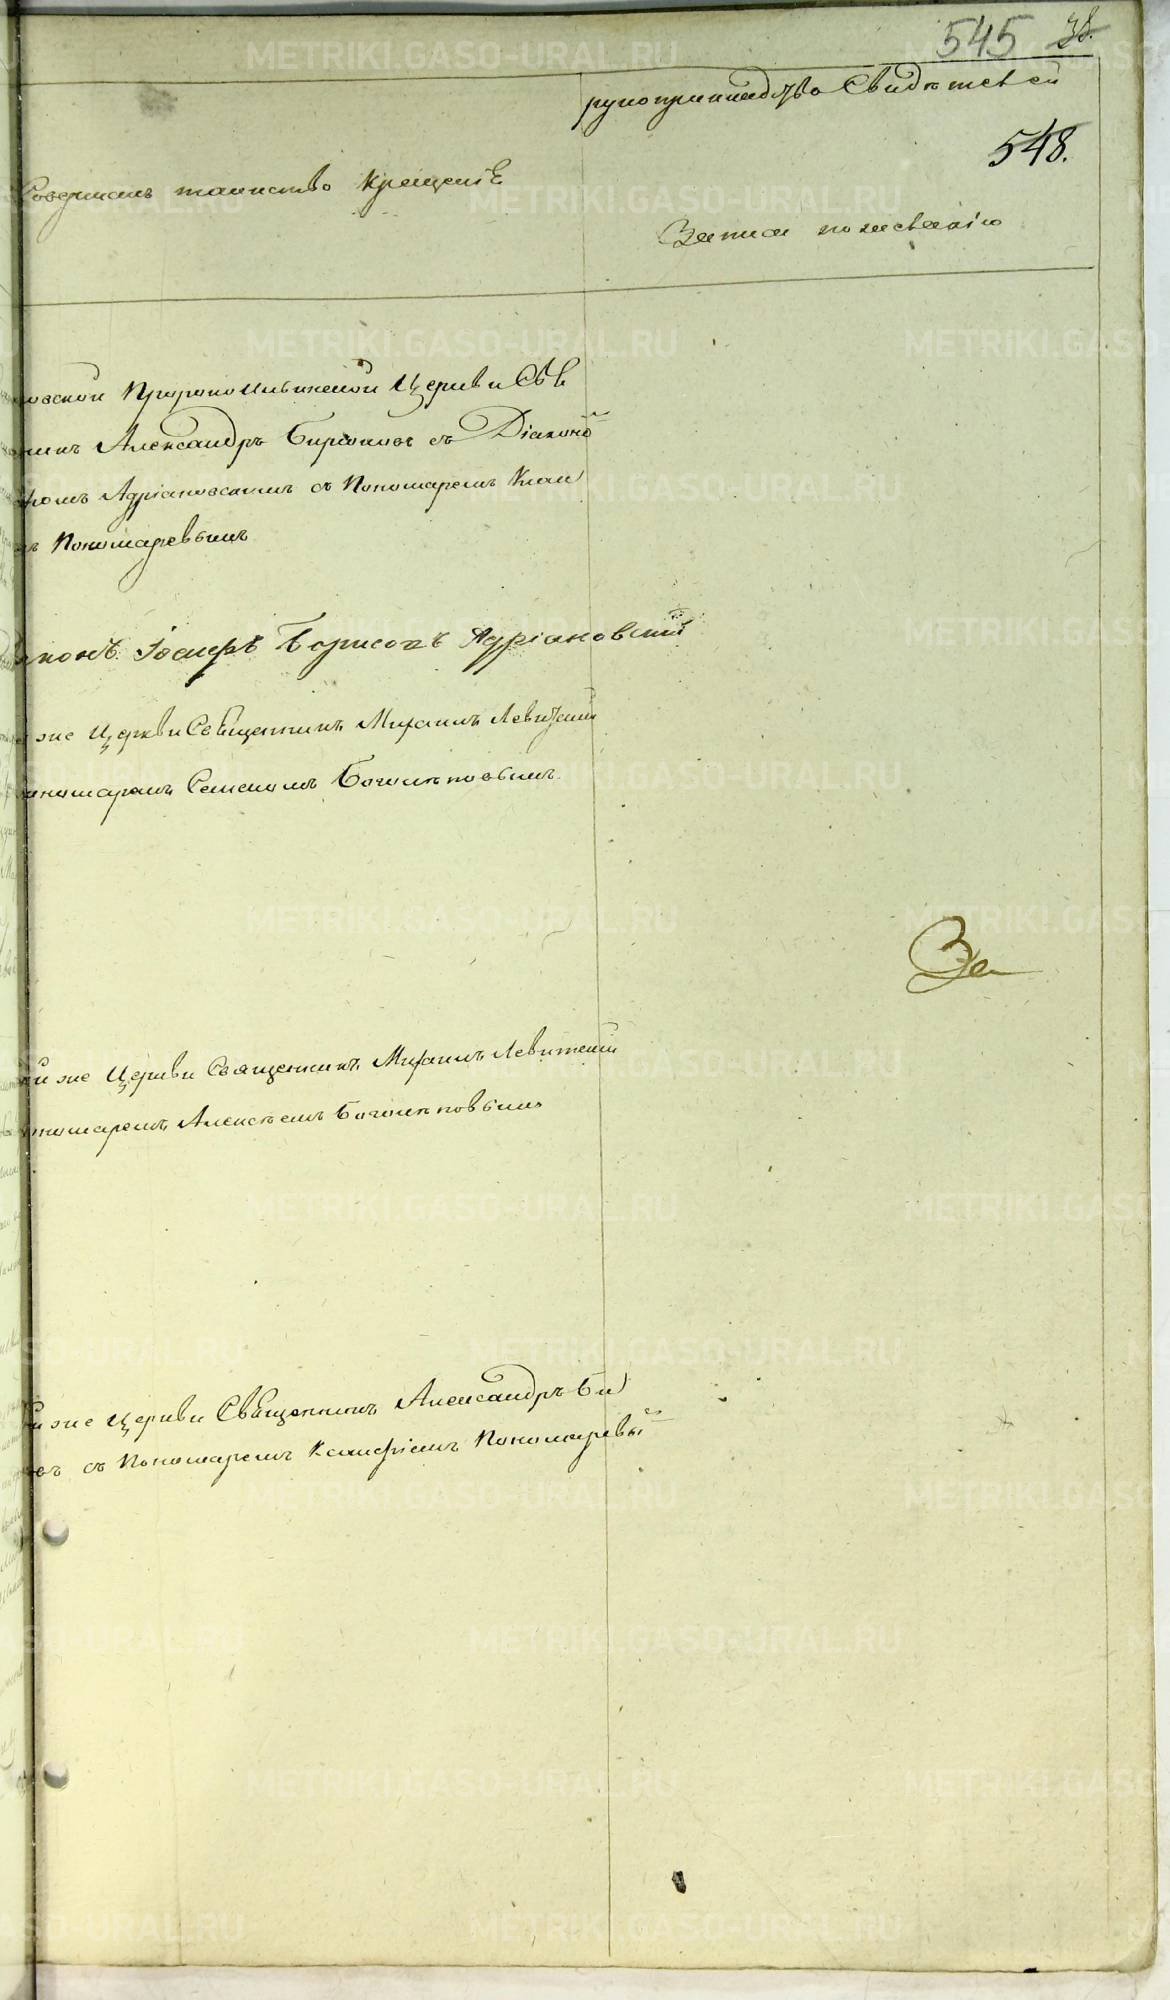 545 38.
рукоприкладство Свидѣтелей
548.
Совершалъ таинство крещенiѣ
Записи по желанiю
Пророкоильинской Церкви Свѧ
Александръ Бирюковъ съ Дiакономъ
Адрiановскимъ съ Пономаремъ Клав
Пономаревымъ
Iосифъ Борисовъ Адрiановскiй
же Церкви Священникъ Михаилъ Левитскiй
Пономаремъ Семеномъ Боголѣповымъ.
За
же Церкви Священникъ Михаилъ Левитскiй
Пономаремъ Алексѣемъ Боголѣповымъ
же Церкви Священникъ Александръ Би
съ Пономаремъ Клавдiемъ Пономаревый